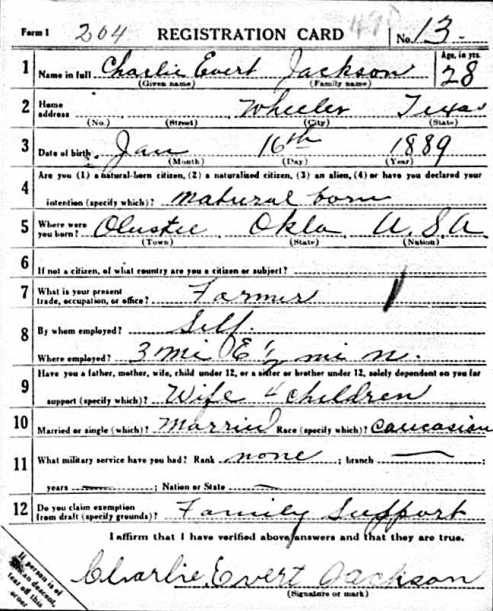 Form 1 204 REGISTRATION CARD No. 13.
1 Name in full Charlie Evert Jackson Age, in yrs. 28
(Given name) (Family name)
2 Home address Wheeler Texas
(No.) (Street) (City) (State)
3 Date of birth Jan 16th 1889
(Month) (Day) (Year)
4 Are you (1) a natural-born citizen, (2) a naturalized citizen, (3) an alien, (4) or have you declared your
intention (specify which)? natural born
5 Where were you born? Olustee Okla U.S.A.
(Town) (State) (Nation)
6 If not a citizen, of what country are you a citizen or subject?
7 What is your present trade, occupation, or office? Farmer
8 By whom employed? Self.
Where employed? 3 mi E ½ mi n.
9 Have you a father, mother, wife, child under 12, or a sister or brother under 12, solely dependent on you for
support (specify which)? Wife & children
10 Married or single (which)? Married Race (specify which)? Caucasian
11 What military service have you had? Rank none ; branch ;
years ; Nation or State
12 Do you claim exemption from draft (specify grounds)? Family Support
I affirm that I have verified above answers and that they are true.
Charlie Evert Jackson
(Signature or mark)
If person is of
descent,
tear off this
corner